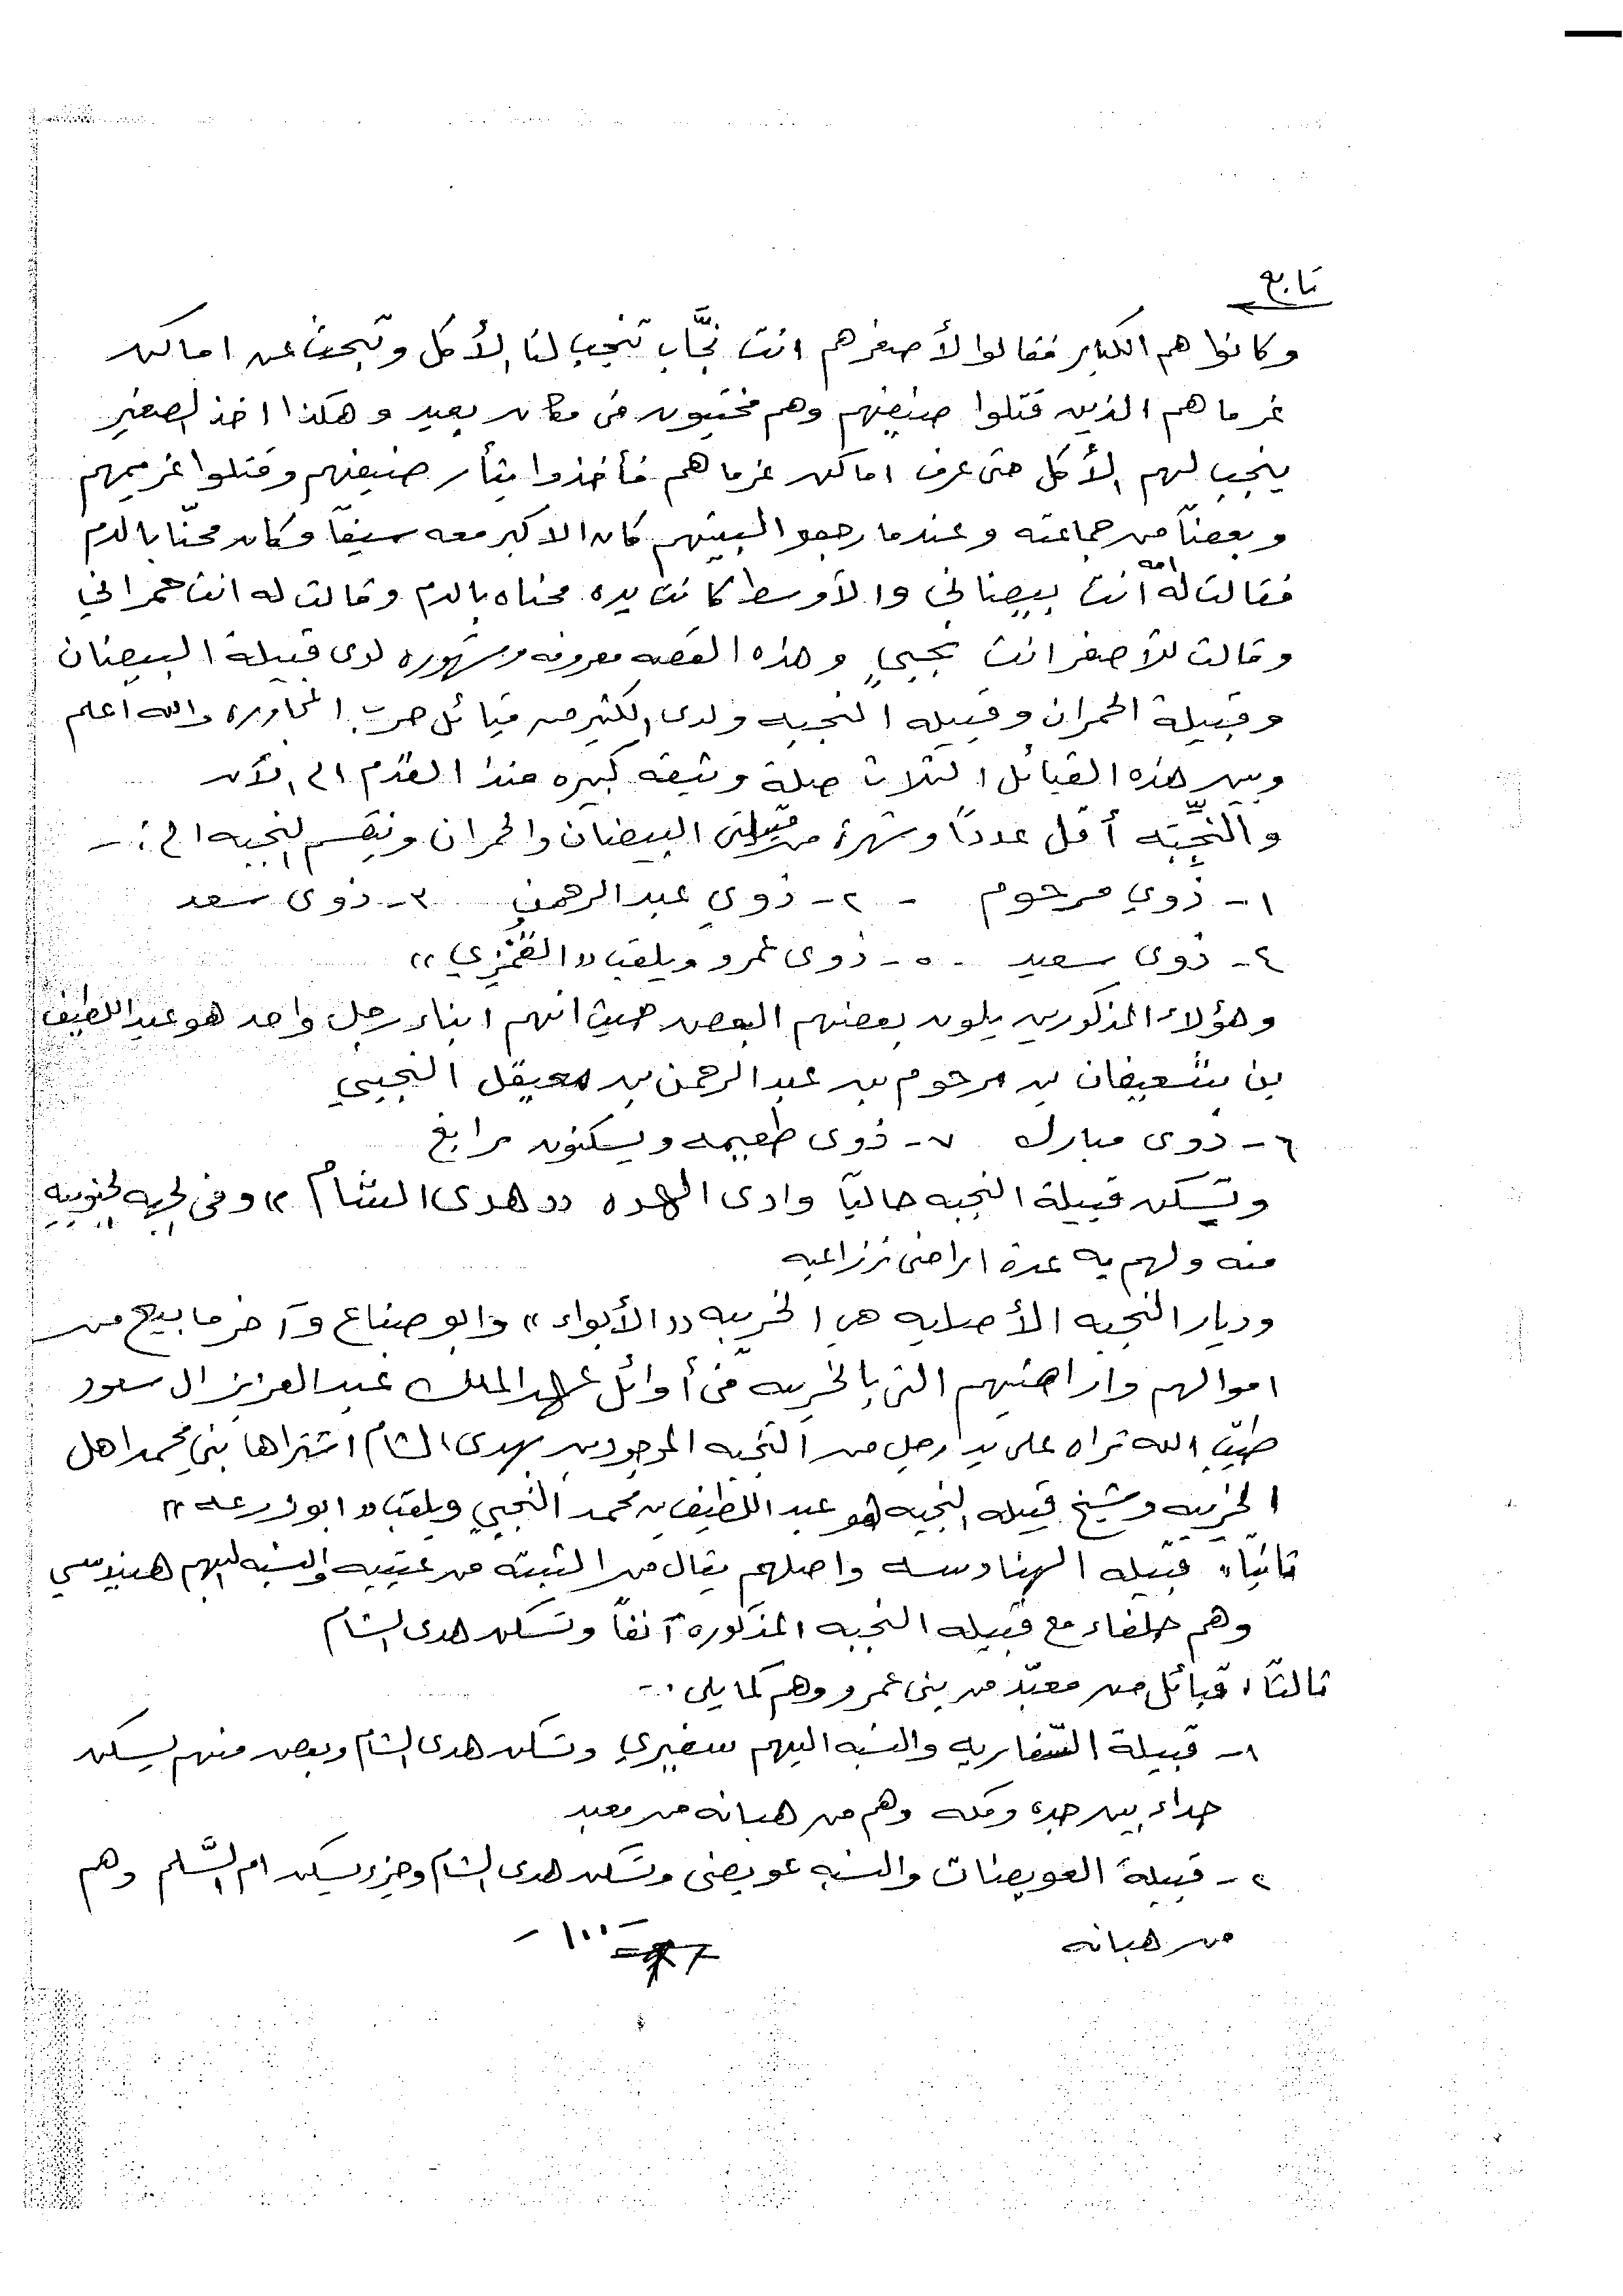 تابع
وكانوا هم الكبار فقالوا لأصغرهم انت نجَّاب تنجب لنا الأكل وتبحث عن اماكن
غرماهم الذين قتلوا ضيفهم وهم مختبون فى مكان بعيد وهكذا اخذ الصغير
ينجب لهم الأكل حتى عرف اماكن غرماهم فأخذوا بثأر ضيفهم وقتلوا غريمهم
وبعضاً من جماعته وعندما رجعوا لبيتهم كان الاكبر معه سيفاً وكان محنّا بالدم
فقالت له امه انت بيضاني والاوسط كانت يده محناه بالدم وقالت له انت حمراني
وقالت للأصغر انت نجيبي وهذه القصه معروفه ومشهوره لدى قبيلة البيضان
وقبيلة الحمران وقبيله النجبه ولدى الكثير من قبائل حرب المجاوره والله اعلم
وبين هذه القبائل الثلاث صلة وثيقه كبيره منذ القدم الى الأن
والنجبته أقل عدداً وشهرة من قبيلتى البيضان والحمران وتنقسم النجبه الى :-
١- ذوي مرحوم - ٢- ذوي عبدالرحمن ٣- ذوى سعد
٤- ذوى سعيد - ٥- ذوى عمرو ويلقب ((القمّزي))
وهؤلاء المذكورين يلون بعضهم البعض حيث انهم ابناء رجل واحد هو عبد اللطيف
بن شعيفان بن مرحوم بن عبدالرحمن بن معيقل النجيبي
٦- ذوى مبارك ٧- ذوى طعيمه ويسكنون رابغ
وتسكن قبيلة النجبه حالياً وادى الهده ((هدى الشام)) وفى الجهه الجنوبيه
منه ولهم به عدة اراضى زراعيه
وديار النجبه الأصليه هي الخريبه ((الأبواء)) وابو ضباع وآخر ما بيع من
اموالهم واراضيهم التى بالخريبه فى أوائل عهد الملك عبدالعزيز ال سعود
طيّب الله ثراه على يد ارجل من النجبه الموجودين بهدى الشام اشتراها بني محمد اهل
الخريبه وشيخ قبيله النجبه هو عبد اللطيف بن محمد النجيبي ويلقب ((ابو زرعه))
ثانياً، قبيله الهنادسه واصلهم يقال من الثبته من عتيبه والنسبه اليهم هنيدسي
وهم حلفاء مع قبيله النجبه المذكوره آنفاً وتسكن هدى الشام
ثالثاً، قبائل من معبّد من بنى عمرو وهم كما يلى :-
١- قبيلة السّفاريه والنسبه اليهم سفيري وتسكن هدى الشام وبعض منهم يسكن
حداء بين جده ومكه وهم من هبانه من معبد
٢- قبيلة العويضات والنسبه عويضى وتسكن هدى الشام وجزء يسكن ام السَّلم وهم
من هبانه
- ١٠٠ -